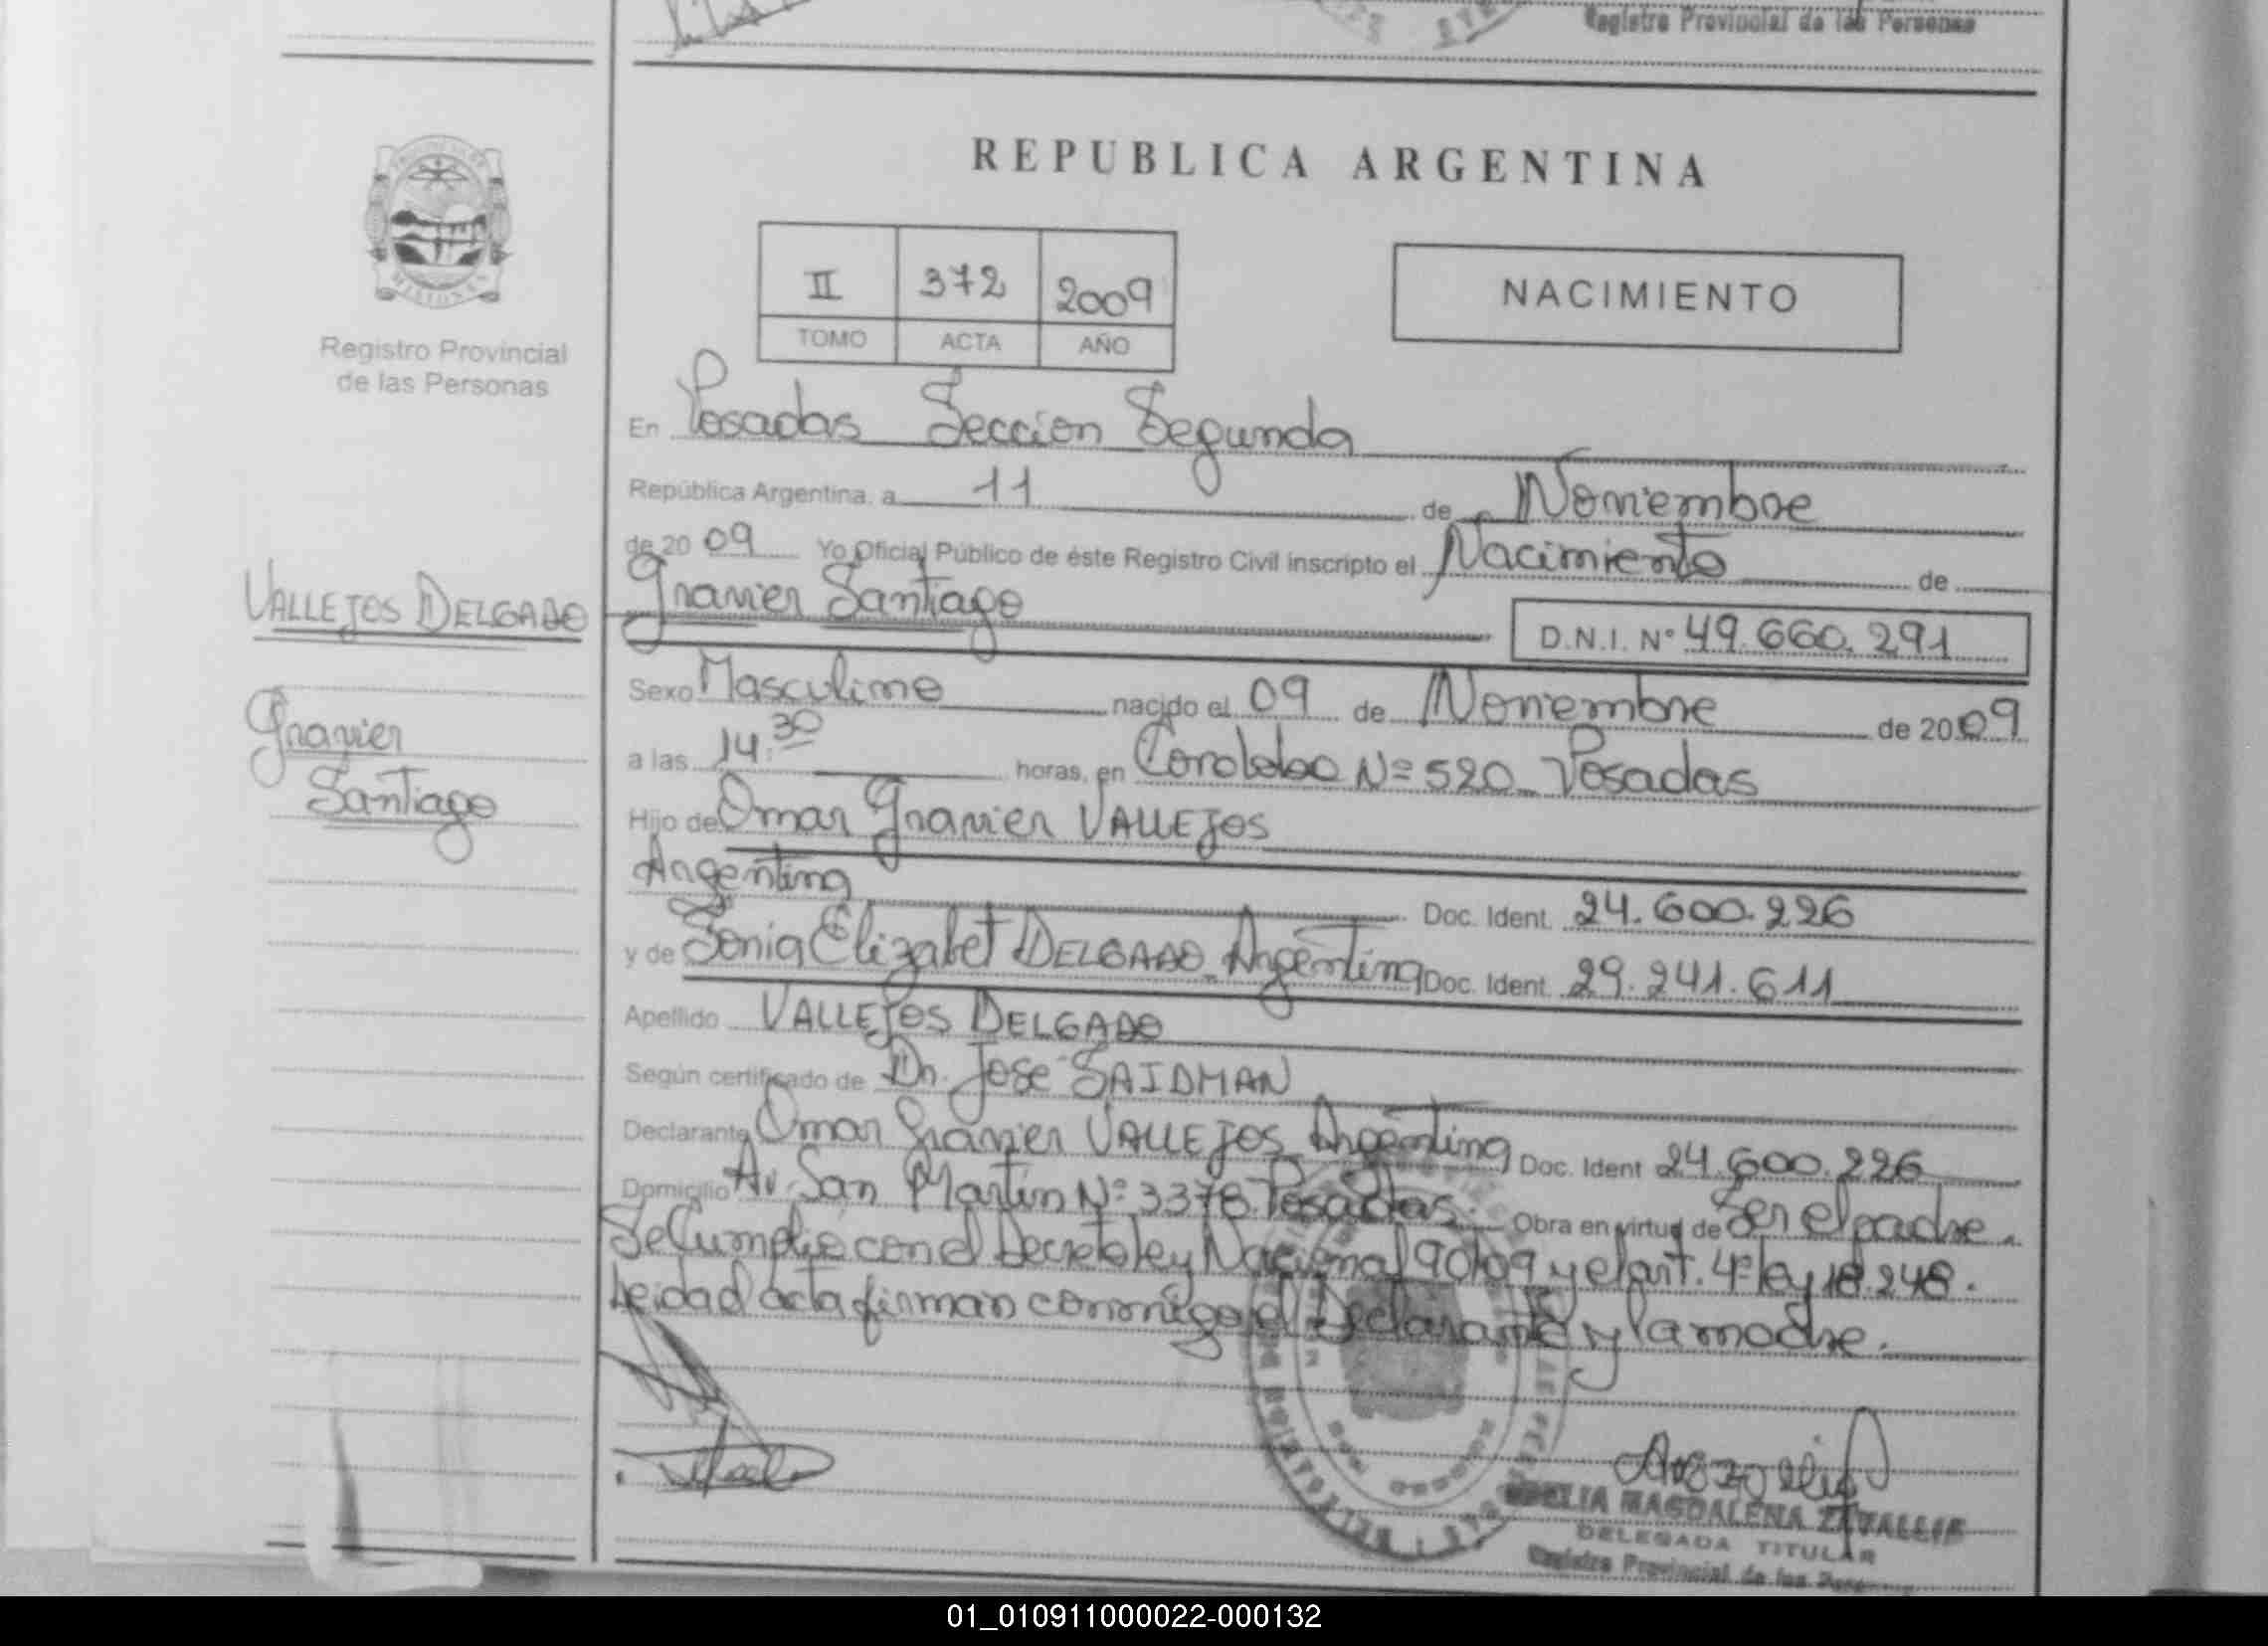 Registro Provincial de las Personas
REPUBLICA ARGENTINA
II 372 2009
TOMO ACTA AÑO
NACIMIENTO
Registro Provincial
de las Personas
En Posadas Sección Segunda
República Argentina, a 11 de Noviembre
de 2009 Yo Oficial Público de éste Registro Civil inscripto el Nacimiento de
VALLEJOS DELGADO
Gravier
Santiago
Gravier Santiago
D.N.I. N° 49.660.291
Sexo Masculino nacido el 09 de Noviembre de 2009
a las 14:30 horas, en Cordoba N° 520 Posadas
Hijo de Omar Gravier VALLEJOS
Argentino Doc. Ident. 24.600.226
y de Sonia Elizabet DELGADO Argentina Doc. Ident. 29.241.611
Apellido VALLEJOS DELGADO
Según certificado de Dr. Jose SAIDMAN
Declarante Omar Gravier VALLEJOS Argentino Doc. Ident 24.600.226
Domicilio Av. San Martín N° 3378 Posadas. Obra en virtud de Ser el padre.
Se Cumplió con el Decreto ley Nacional 90/09 y el art. 4° ley 18.248.
Leida el acta firman conmigo el Declarante y la madre.
MAGDALENA
DELEGADA TITULAR
Registro Provincial de las
01_010911000022-000132